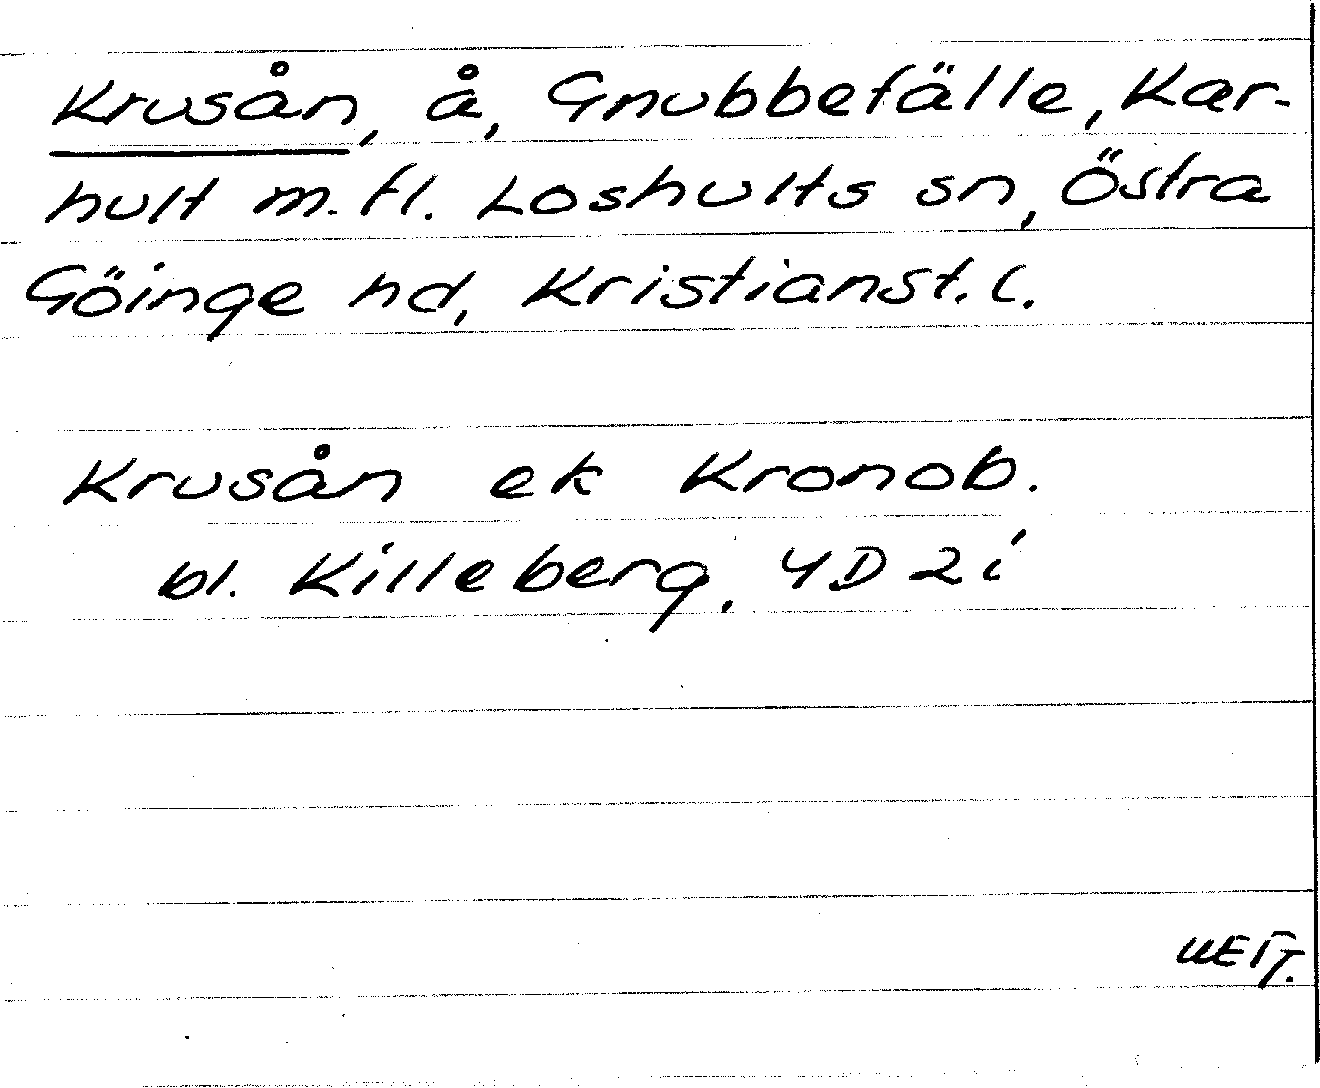 Krusån, å, Gnubbefälle, Kar-
hult m.fl. Loshults sn, Östra
Göinge hd, Kristianst. l.
Krusån ek Kronob.
bl. Killeberg, 4D 2i